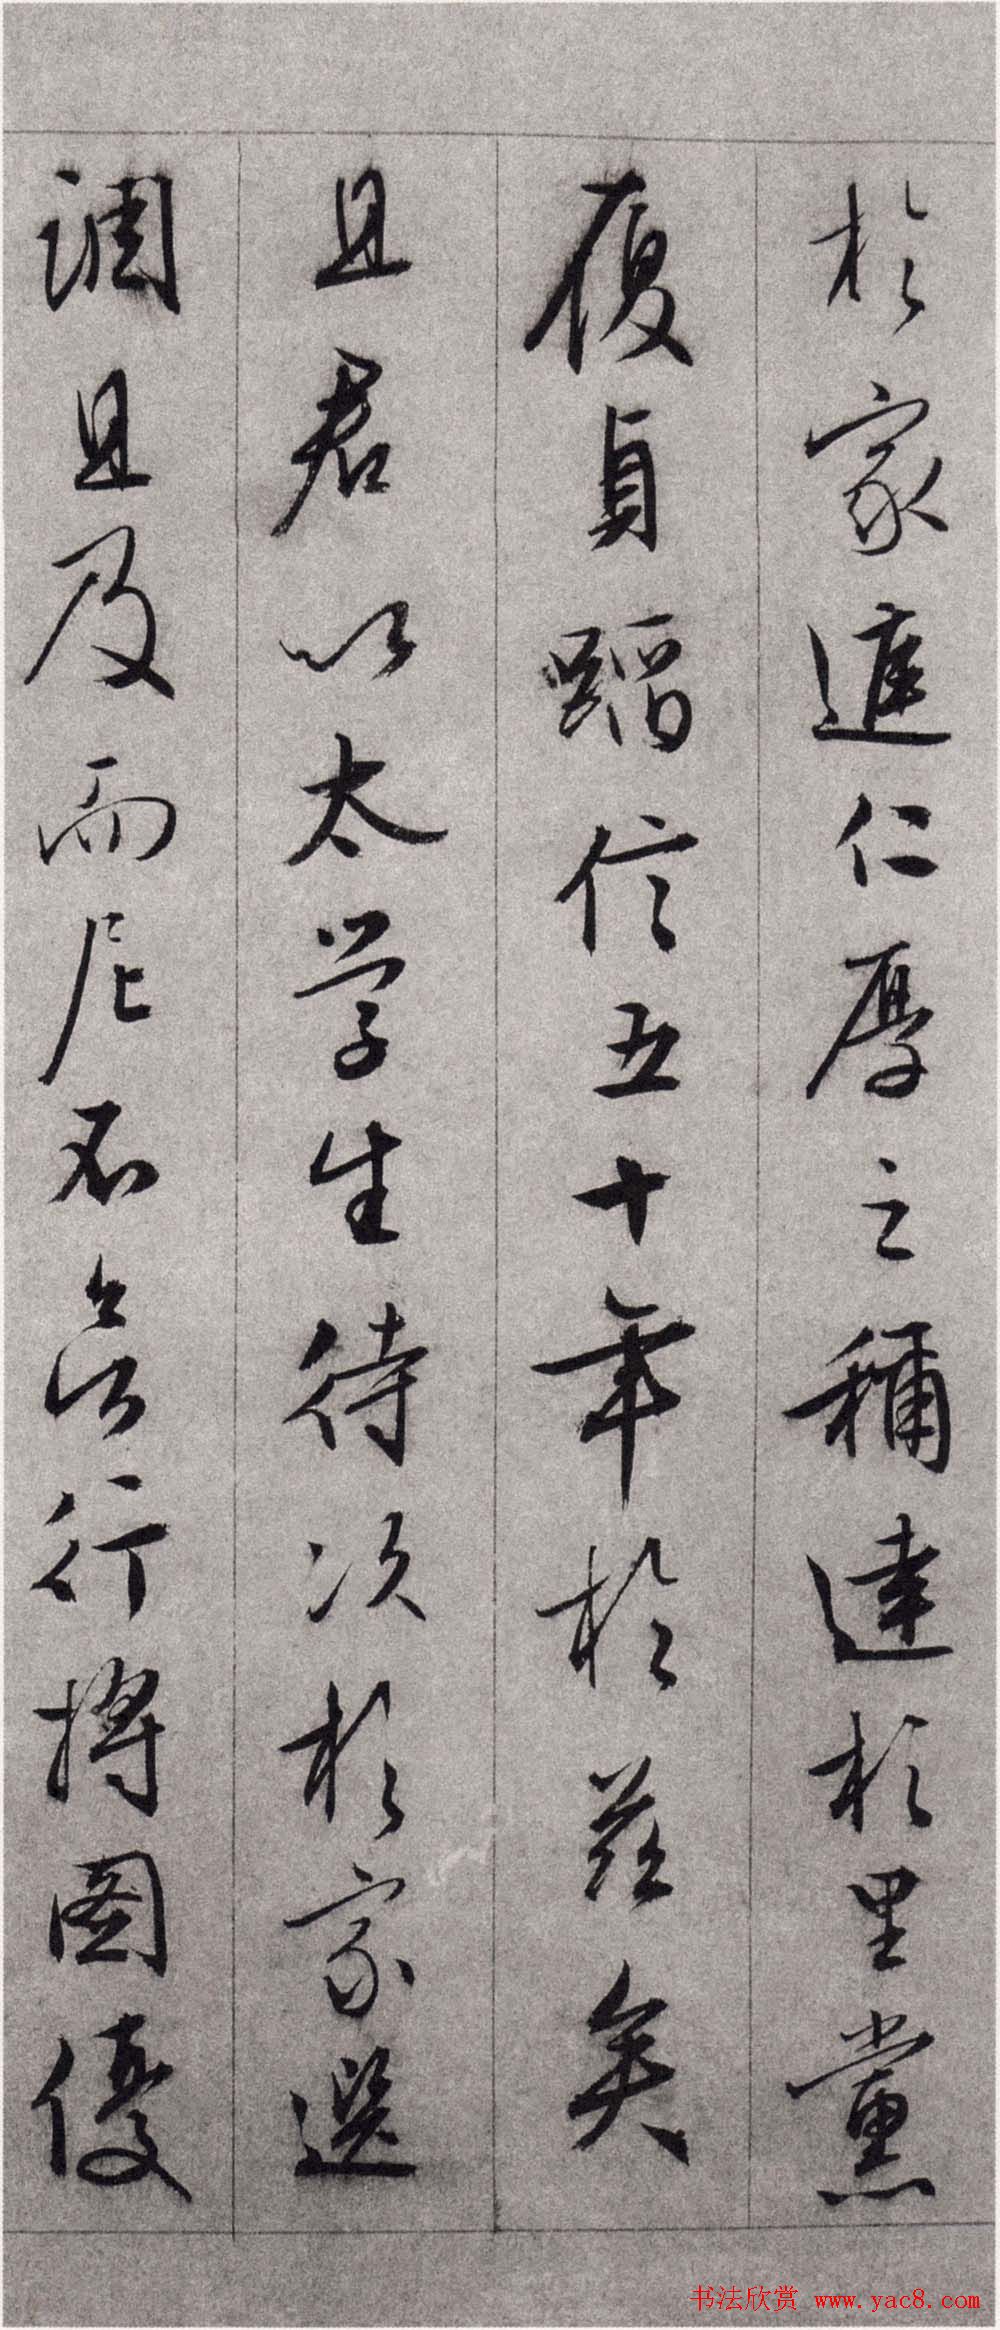 於家進仁厚之稱達於里黨
履貞蹈信五十年於茲矣
且君以太学生待次於家選
調且及而尼不行將圖優
书法欣赏 www.yac8.com